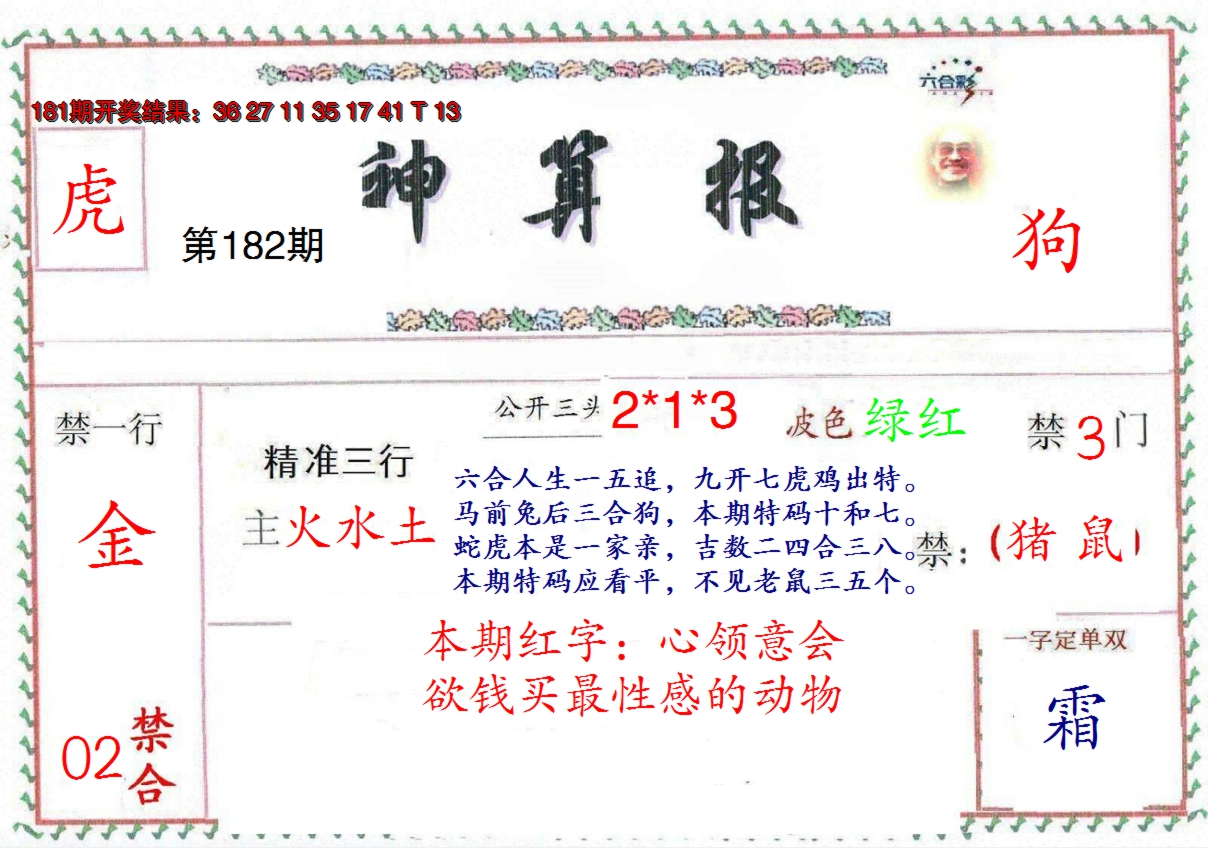 六合彩
181期开奖结果：36 27 11 35 17 41 T 13
虎
神算报
第182期
狗
禁一行
金
02
禁合
精准三行
主火水土
公开三头 2*1*3
波色 绿红
禁3门
六合人生一五追，九开七虎鸡出特。
马前兔后三合狗，本期特码十和七。
蛇虎本是一家亲，吉数二四合三八。
本期特码应看平，不见老鼠三五个。
禁：（猪 鼠）
本期红字：心领意会
欲钱买最性感的动物
一字定单双
霜